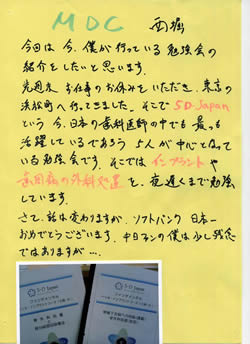 MDC 西堀
今回は今、僕が行っている勉強会の
紹介をしたいと思います。
先週末、お仕事のお休みをいただき、東京の
浜松町へ行ってきました。そこで5D Japan
という今、日本の歯科医師の中でも最も
活躍しているであろう5人が中心となって
いる勉強会です。そこではインプラントや
歯周病の外科処置を、夜遅くまで勉強
しています。
さて、話は変わりますが、ソフトバンク日本一
おめでとうございます。中日ファンの僕は少し残念
ではありますが…。
5-D Japan
5-D Japan
ファンダメンタルコース